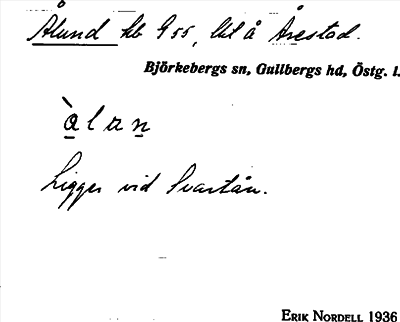 Ålund hb 955, lit å Årestad.
Björkebergs sn, Gullbergs hd, Östg. l.
àlan
Ligger vid Svartån.
ERIK NORDELL 1936